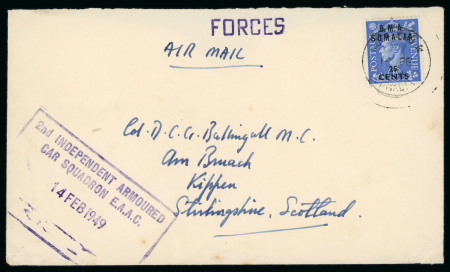 FORCES
AIR MAIL
POSTAGE REVENUE
B.M.A.
SOMALIA
25
CENTS
Col. D. C. G. Ballingall M.C.
Am Bruach
Kippen
Stirlingshire, Scotland.
2nd INDEPENDENT ARMOURED
CAR SQUADRON E.A.A.C.
14 FEB 1949